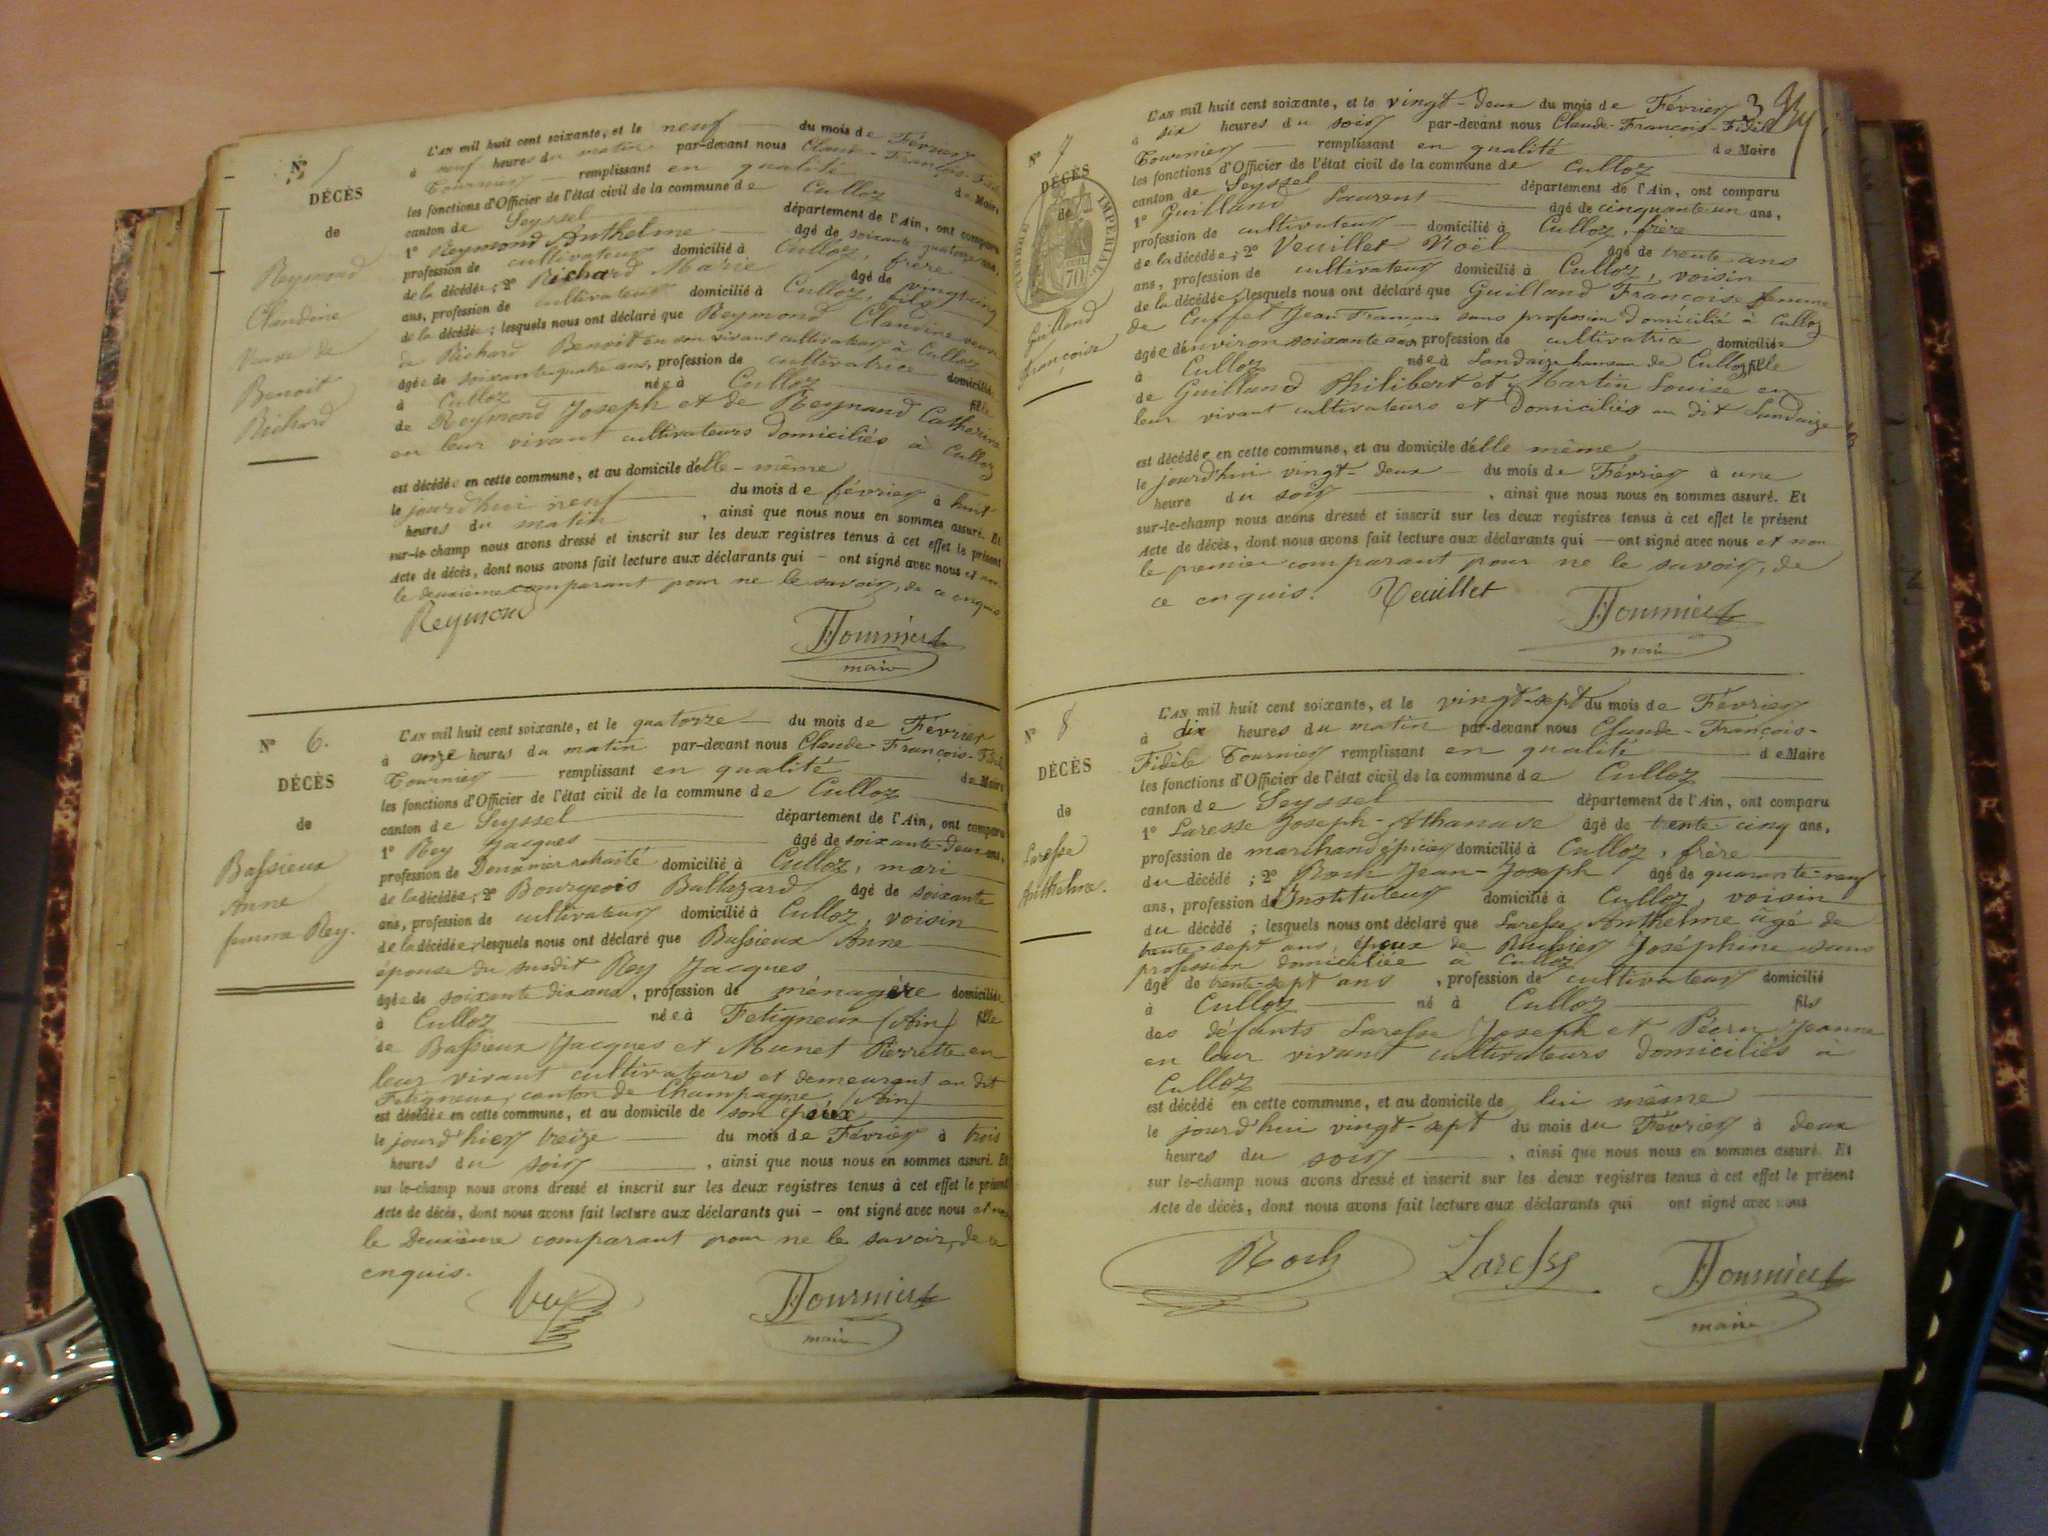 N° 5
DÉCÈS
de
Reymond
Claudine
Veuve de
Benoit
Richard
L'AN mil huit cent soixante, et le neuf du mois de Février
à neuf heures du matin par-devant nous Claude-François-Fidèle
Tournier remplissant en qualité de Maire
les fonctions d'Officier de l'état civil de la commune de Culloz
canton de Seyssel département de l'Ain, ont comparu
1° Reymond Anthelme âgé de soixante quatorze ans,
profession de cultivateur domicilié à Culloz, frère
de la décédée; 2° Richard Marie âgé de vingt cinq
ans, profession de cultivateur domicilié à Culloz, fils
de la décédée; lesquels nous ont déclaré que Reymond Claudine veuve
de Richard Benoit en son vivant cultivateur à Culloz
âgée de soixante quatre ans, profession de cultivatrice domiciliée
à Culloz née à Culloz fille
de Reymond Joseph et de Reynaud Catherine
en leur vivant cultivateurs domiciliés à Culloz
est décédée en cette commune, et au domicile d'elle-même
le jourd'hui neuf du mois de février à huit
heures du matin, ainsi que nous nous en sommes assuré. Et
sur-le-champ nous avons dressé et inscrit sur les deux registres tenus à cet effet le présent
Acte de décès, dont nous avons fait lecture aux déclarants qui – ont signé avec nous et non
le deuxième comparant pour ne le savoir, de ce enquis
Reymond
Tournier
maire
N° 6.
DÉCÈS
de
Bassieux
Anne
femme Rey.
L'AN mil huit cent soixante, et le quatorze du mois de Février
à onze heures du matin par-devant nous Claude-François-Fidèle
Tournier remplissant en qualité de Maire
les fonctions d'Officier de l'état civil de la commune de Culloz
canton de Seyssel département de l'Ain, ont comparu
1° Rey Jacques âgé de soixante-deux ans,
profession de Douanier retraité domicilié à Culloz, mari
de la décédée; 2° Bourgeois Baltazard âgé de soixante
ans, profession de cultivateur domicilié à Culloz, voisin
de la décédée; lesquels nous ont déclaré que Bassieux Anne
épouse du susdit Rey Jacques
âgée de soixante dix ans, profession de ménagère domiciliée
à Culloz née à Fetigneux (Ain) fille
de Bassieux Jacques et Munet Pierrette en
leur vivant cultivateurs et demeurant au dit
Fetigneux, canton de Champagne (Ain)
est décédée en cette commune, et au domicile de son époux
le jourd'hier treize du mois de Février à trois
heures du soir, ainsi que nous nous en sommes assuré. Et
sur le-champ nous avons dressé et inscrit sur les deux registres tenus à cet effet le présent
Acte de décès, dont nous avons fait lecture aux déclarants qui – ont signé avec nous et non
le Deuxième comparant pour ne le savoir, de ce
enquis.
Rey
Tournier
maire
3
N° 7
DÉCÈS
de
TIMBRE IMPÉRIAL
70
Guilland
Françoise
L'AN mil huit cent soixante, et le vingt-deux du mois de Février
à six heures du soir par-devant nous Claude-François-Fidèle
Tournier remplissant en qualité de Maire
les fonctions d'Officier de l'état civil de la commune de Culloz
canton de Seyssel département de l'Ain, ont comparu
1° Guilland Laurent âgé de cinquante un ans,
profession de cultivateur domicilié à Culloz, frère
de la décédée; 2° Veuillet Noël âgé de trente ans
ans, profession de cultivateur domicilié à Culloz, voisin
de la décédée; lesquels nous ont déclaré que Guilland Françoise femme
de Cuffet Jean François sans profession domicilié à Culloz
âgée d'environ soixante ans, profession de cultivatrice domiciliée
à Culloz née à Landaize hameau de Culloz fille
de Guilland Philibert et Martin Louise en
leur vivant cultivateurs et domiciliés au dit Landaize
est décédée en cette commune, et au domicile d'elle même
le jourd'hui vingt-deux du mois de Février à une
heure du soir, ainsi que nous nous en sommes assuré. Et
sur-le-champ nous avons dressé et inscrit sur les deux registres tenus à cet effet le présent
Acte de décès, dont nous avons fait lecture aux déclarants qui – ont signé avec nous et non
le premier comparant pour ne le savoir, de
ce enquis. Veuillet
Tournier
maire
N° 8
DÉCÈS
de
Laresse
Anthelme.
L'AN mil huit cent soixante, et le vingt-sept du mois de Février
à dix heures du matin par-devant nous Claude-François-
Fidèle Tournier remplissant en qualité de Maire
les fonctions d'Officier de l'état civil de la commune de Culloz
canton de Seyssel département de l'Ain, ont comparu
1° Laresse Joseph-Athanase âgé de trente-cinq ans,
profession de marchand épicier domicilié à Culloz, frère
du décédé; 2° Roch Jean-Joseph âgé de quarante-neuf
ans, profession d'Instituteur domicilié à Culloz, voisin
du décédé; lesquels nous ont déclaré que Laresse Anthelme âgé de
trente-sept ans, époux de Joséphine sans
profession domiciliée à Culloz
âgé de trente-sept ans, profession de cultivateur domicilié
à Culloz né à Culloz fils
des défunts Laresse Joseph et Jeanne
en leur vivant cultivateurs domiciliés à
Culloz
est décédé en cette commune, et au domicile de lui même
le jourd'hui vingt-sept du mois du Février à deux
heures du soir, ainsi que nous nous en sommes assuré. Et
sur le-champ nous avons dressé et inscrit sur les deux registres tenus à cet effet le présent
Acte de décès, dont nous avons fait lecture aux déclarants qui ont signé avec nous
Roch Laresse Tournier
maire